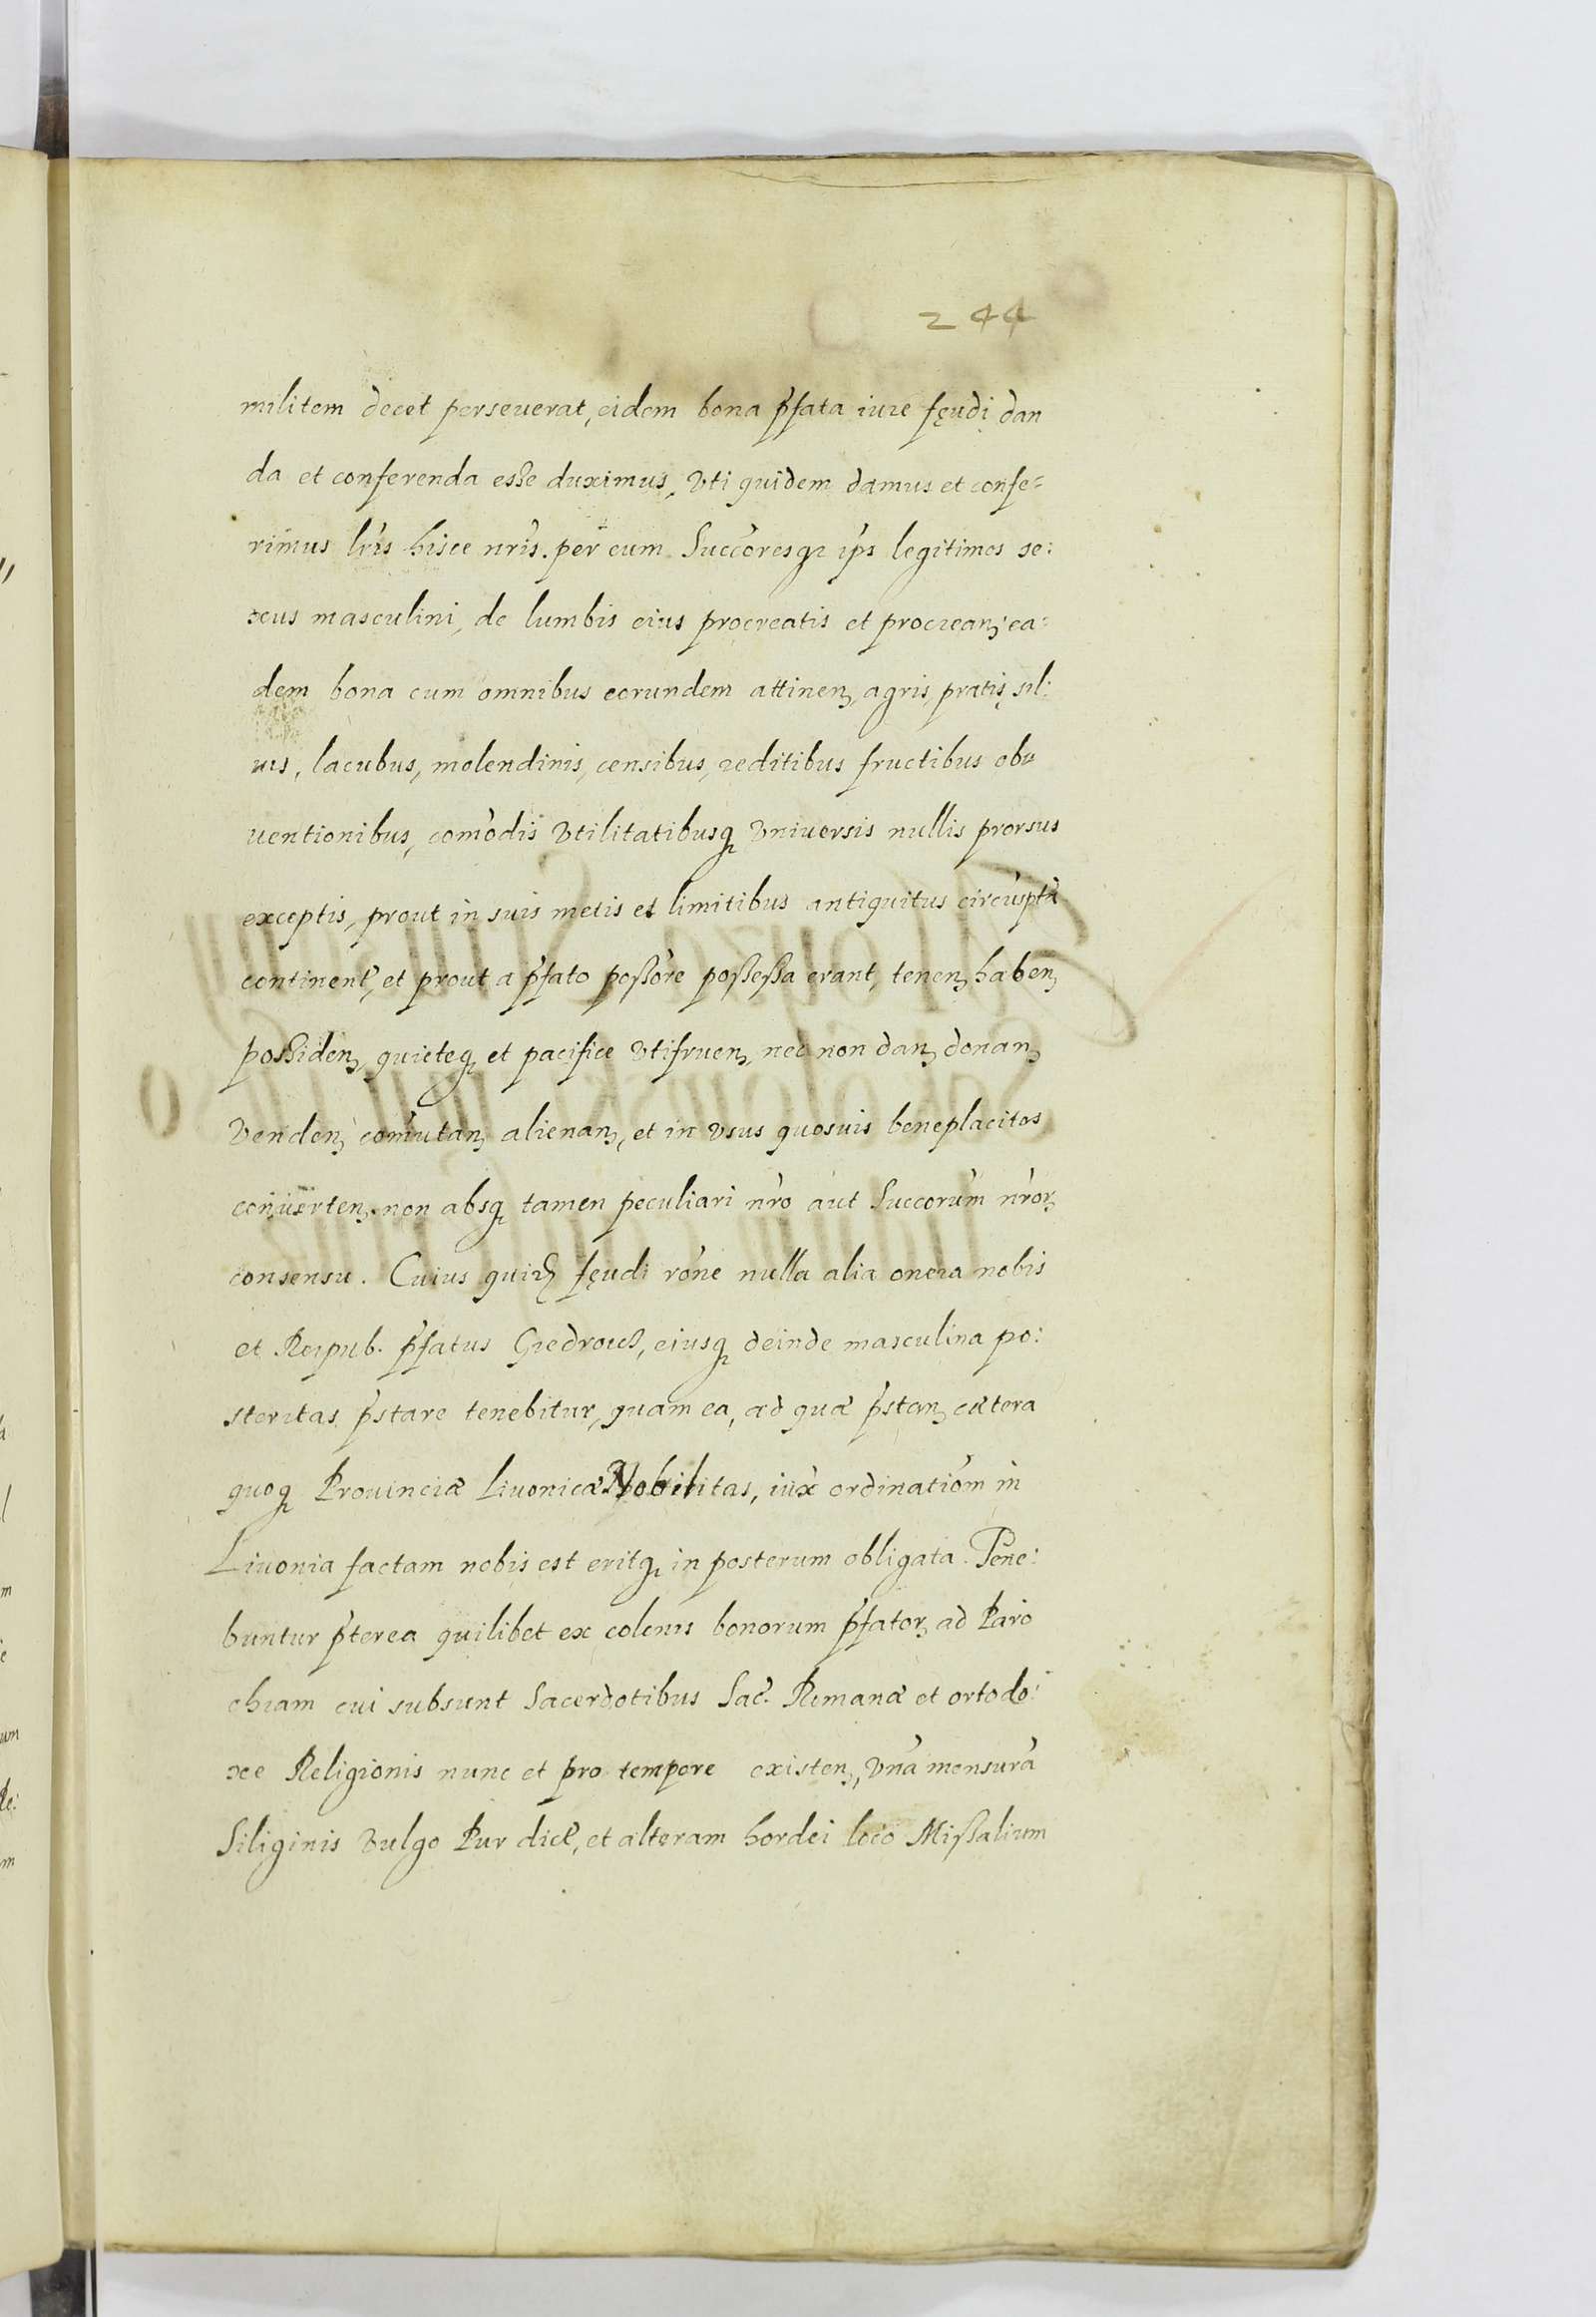 244
militem decet perseuerat, eidem bona p̃fata iure fęudi dan
da et conferenda esse duximus, Vti quidem damus et confe=
rimus lr̃is hisce nr̃is. per eum Succoresqꝫ ip̃s legitimos se:
xus masculini, de lumbis eius procreatis et procreanꝫ ea:
dem bona cum omnibus eorundem attinenꝫ, agris, pratis, sil:
uis, lacubus, molendinis, censibus, reditibus fructibus ob
uentionibus, com̃odis Vtilitatibusqꝫ Vniuersis nullis prorsus
exceptis, prout in suis metis et limitibus antiquitus circũsptè
continentˀ, et prout a p̃fato poßore poßeßa erant, tenenꝫ habenꝫ
possidenꝫ, quieteqꝫ et pacifice Vtifruenꝫ, nec non danꝫ donanꝫ
Vendenꝫ com̃utanꝫ alienanꝫ, et in Vsus quosuis beneplacitos
conuertenꝫ. non absqꝫ tamen peculiari nr̃o aut Succorum nr̃orꝫ
consensu. Cuius quidꝫ fęudi rõne nulla alia onera nobis
et Reipub. p̃fatus Giedroicz, eiusqꝫ deinde masculina po:
steritas p̃stare tenebitur, quam ea, ad quæ p̃stanꝫ cætera
quoqꝫ Prouinciæ Liuonicæ Nobilitas, iux̃ ordination̄em in
Liuonia factam nobis est eritqꝫ in posterum obligata. Tene:
buntur p̃terea quilibet ex colonis bonorum p̃fatorꝫ ad Paro
chiam cui subsunt Sacerdotibus Sac̃. Romanæ et ortodo:
xe Religionis nunc et pro tempore existenꝫ, Vnã mensurã
Siliginis Vulgo Pur dictˀ, et alteram hordei loco Mißalium